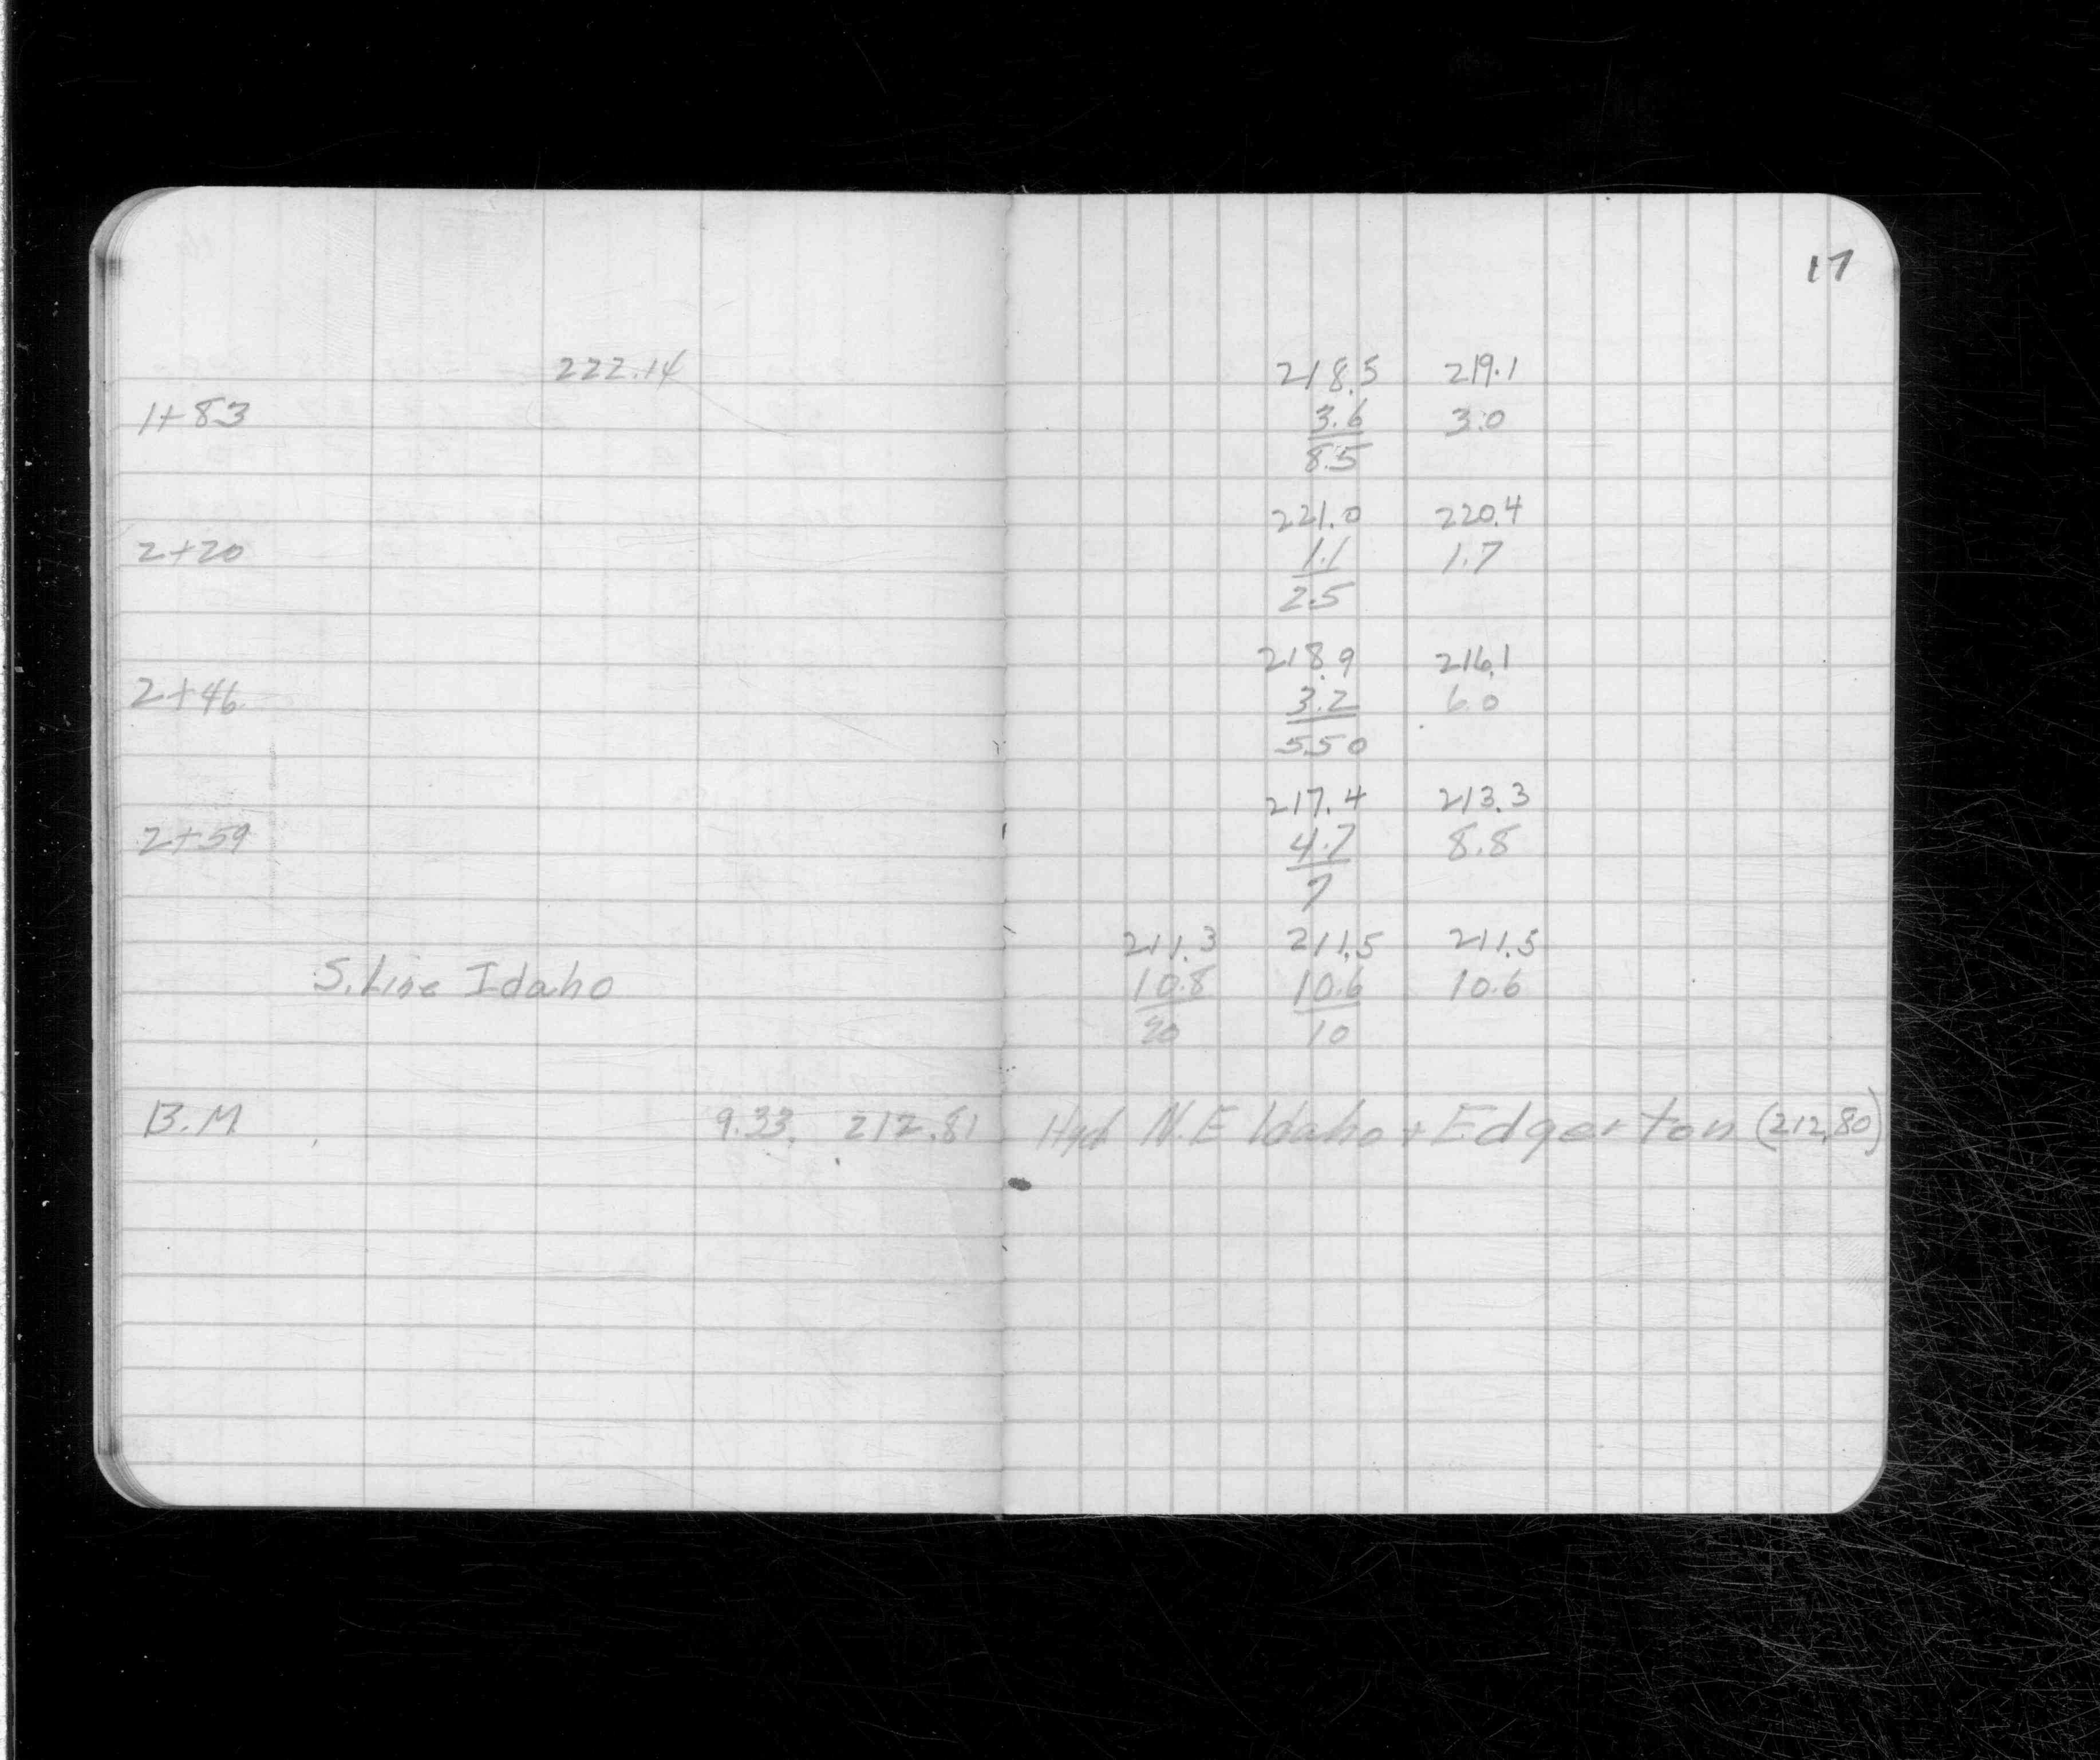 17
222.14 218.5 219.1
1+83 3.6 3.0
8.5
221.0 220.4
2+20 1.1 1.7
2.5
218.9 216.1
2+46 3.2 6.0
5.50
217.4 213.3
2+59 4.7 8.8
7
211.3 211.5 211.5
S. Line Idaho 10.8 10.6 10.6
20 10
B.M 9.33 212.81 Hyd N.E Idaho + Edgerton (212.80)